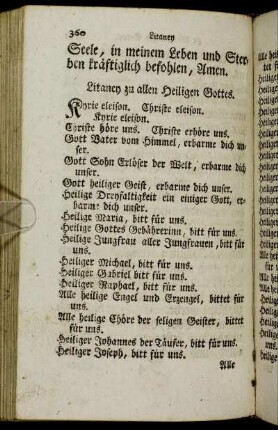 360 Litaney
Seele, in meinem Leben und Ster-
ben kräftiglich befohlen, Amen.
Litaney zu allen Heiligen Gottes.
Kyrie eleison. Christe eleison.
Kyrie eleison.
Christe höre uns. Christe erhöre uns.
Gott Vater vom Himmel, erbarme dich un-
ser.
Gott Sohn Erlöser der Welt, erbarme dich
unser.
Gott heiliger Geist, erbarme dich unser.
Heilige Dreyfaltigkeit ein einiger Gott, er-
barme dich unser.
Heilige Maria, bitt für uns.
Heilige Gottes Gebährerinn, bitt für uns.
Heilige Jungfrau aller Jungfrauen, bitt
für uns.
Heiliger Michael, bitt für uns.
Heiliger Gabriel bitt für uns.
Heiliger Raphael, bitt für uns.
Alle heilige Engel und Erzengel, bittet für
uns.
Alle heilige Chöre der seligen Geister, bittet
für uns.
Heiliger Johannes der Täufer, bitt für uns.
Heiliger Joseph, bitt für uns.
Alle